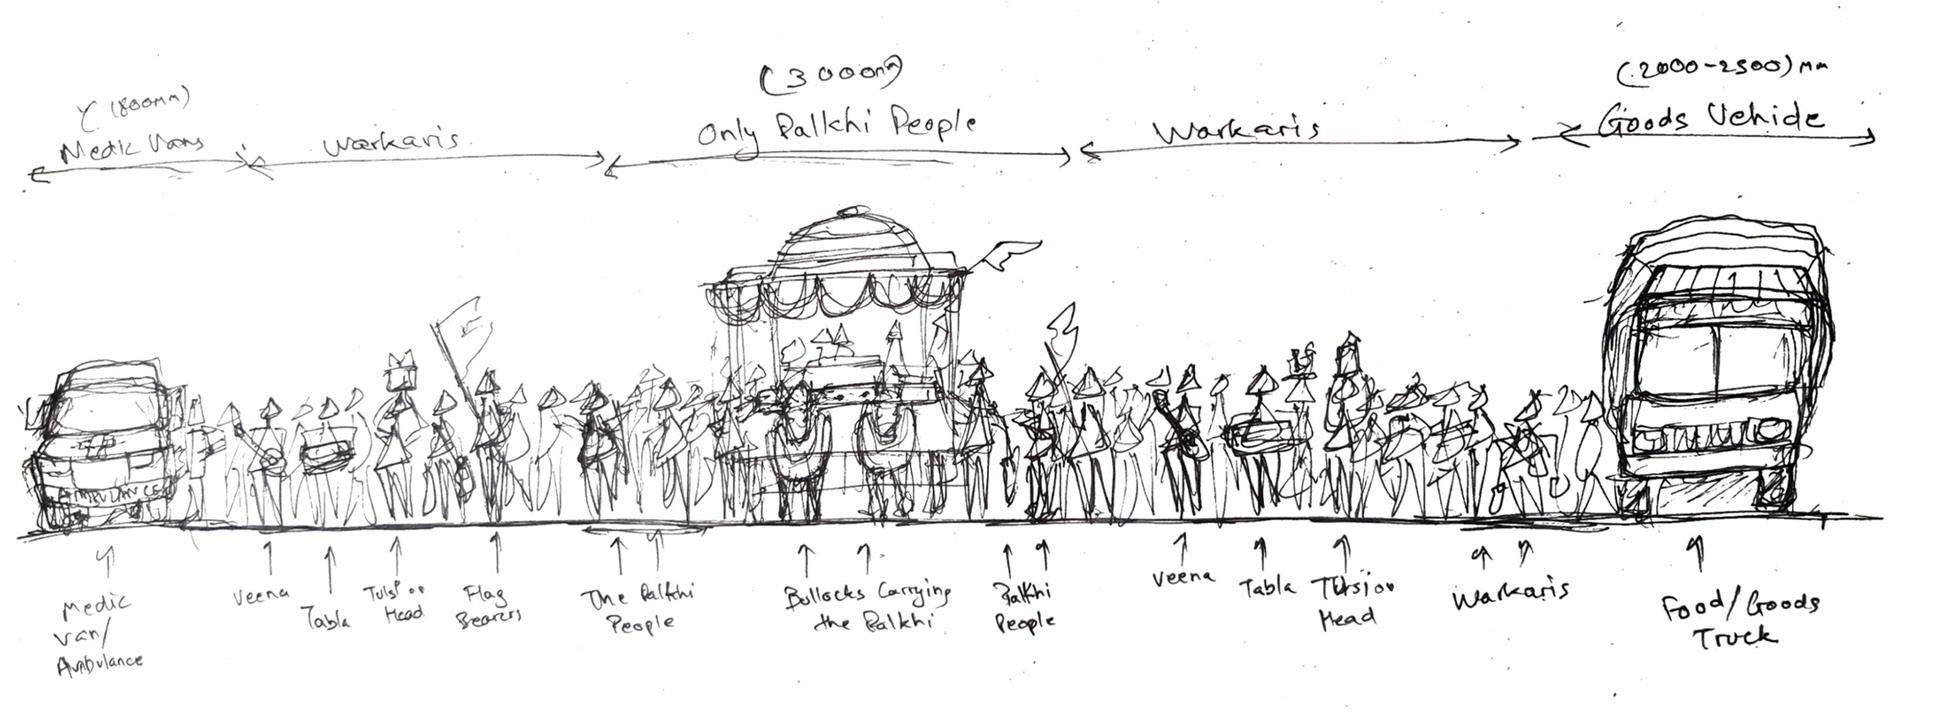 (1800mm)
Medic Vans
Warkaris
(3000mm)
Only Palkhi People
Warkaris
(2000-2500)mm
Goods Vehicle
AMBULANCE
Medic
Van/
Ambulance
Veena
Tabla
Tulsi on
Head
Flag
Bearers
The Palkhi
People
Bullocks Carrying
the Palkhi
Palkhi
People
Veena
Tabla
Tulsi on
Head
Warkaris
Food/Goods
Truck